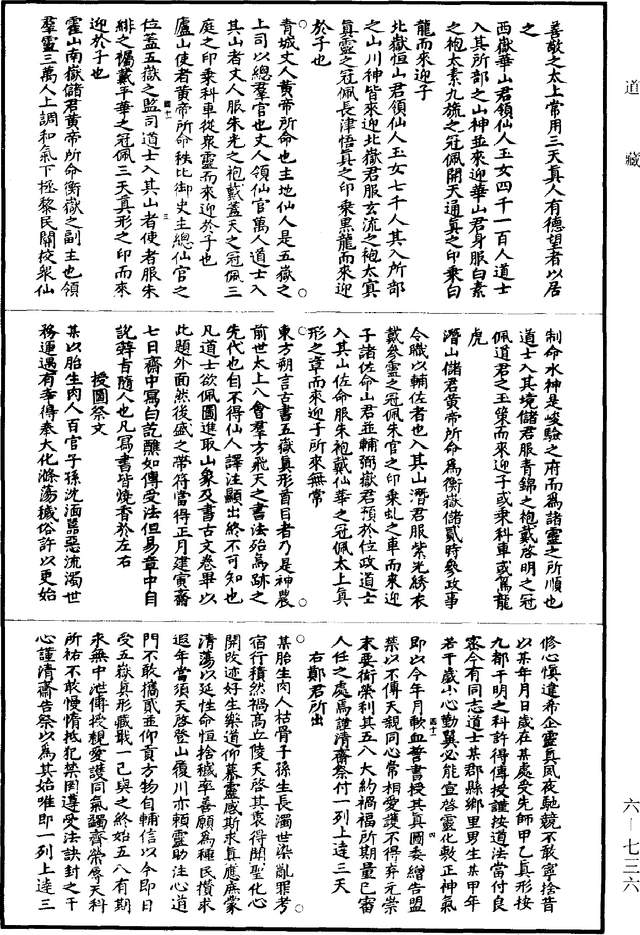 道藏
善敵之太上常用三天真人有德望者以居
之
西嶽華山君領仙人玉女四千一百人道士
入其所部之山神並來迎華山君身服白素
之袍太素九旒之冠佩開天通真之印乘白
龍而來迎子
北嶽恒山君領仙人玉女七千人其入所部
之山川神皆來迎北嶽君服玄流之袍太真
真靈之冠佩長津悟真之印乘黑龍而來迎
於子也
青城丈人黃帝所命也主地仙人是五嶽之
上司以總羣官也丈人領仙官萬人道士入
其山者丈人服朱光之袍戴蓋天之冠佩三
庭之印乘科車從衆靈而來迎於子也
廬山使者黃帝所命秩比御史主總仙官之
位蓋五嶽之監司道士入其山者使者服朱
緋之襡戴平華之冠佩三天真形之印而來
迎於子也
霍山南嶽儲君黃帝所命衡嶽之副主也領
羣靈三萬人上調和氣下拯黎民閱校衆仙
制命水神是峻驗之府而為諸靈之所順也
道士入其境儲君服青錦之袍戴啓明之冠
佩道君之玉策而來迎子或乘科車或駕龍
虎
潛山儲君黃帝所命為衡嶽儲貳時參政事
令職以輔佐者也入其山潛君服紫光綉衣
戴參靈之冠佩朱宮之印乘虬之車而來迎
子諸佐命山君並輔弼嶽君預於位政道士
入其山佐命服朱袍戴仙華之冠佩太上真
形之章而來迎子所來無常
東方朔言古書五嶽真形首目者乃是神農
前世太上八會羣方飛天之書法殆為跡之
先代也自不得仙人譯注顯出終不可知也
凡道士欲佩圖進取山象及書古文卷畢以
此題外面然後盛之帶符當得正月建寅齋
七日齋中寫白訖醮如傳受法但易章中目
訖辭皆隨人也凡寫書皆燒香於左右
授圖祭文
某以胎生肉人百官子孫沈湎囂惡流濁世
務運遇有幸得奉大化滌蕩穢俗許以更始
修心慎違希企靈真夙夜馳競不敢寧捨昔
以某年月日歲在某處受先師甲乙真形按
九都干明之科許得傳授謹按道法當付良
密今有同志道士某郡縣鄉里男生某甲年
若干歲小心勤翼必能宣啓靈化敷正神氣
即以今年月歃血誓書授其真圖奏繒告盟
禁以不傳天親同心常相愛護不得弃元崇
末要衒榮利其五八大約禍福所期量已審
人任之處為謹清齋祭付一列上達三天
右鄭君所出
某胎生肉人枯骨子孫生長濁世染亂罪考
宿行積然禍高丘陵天啓其衷得聞聖化心
開改迹好生樂道仰慕靈感斯求真應庶蒙
清蕩以延性命恒捨穢率善願為種民儧求
遐年當須天啓登山履川亦賴靈助注心道
門不敢攜貳並仰貢方物自輔信以今即日
受五嶽真形藏戢一己與之終始五八有期
永無中泄傳授親愛護同氣蠲齊榮辱天科
所祐不敢慢惰抵犯禁罔遵受法訣封之干
心謹清齋告祭以為其始唯即一列上達三
六—七三六